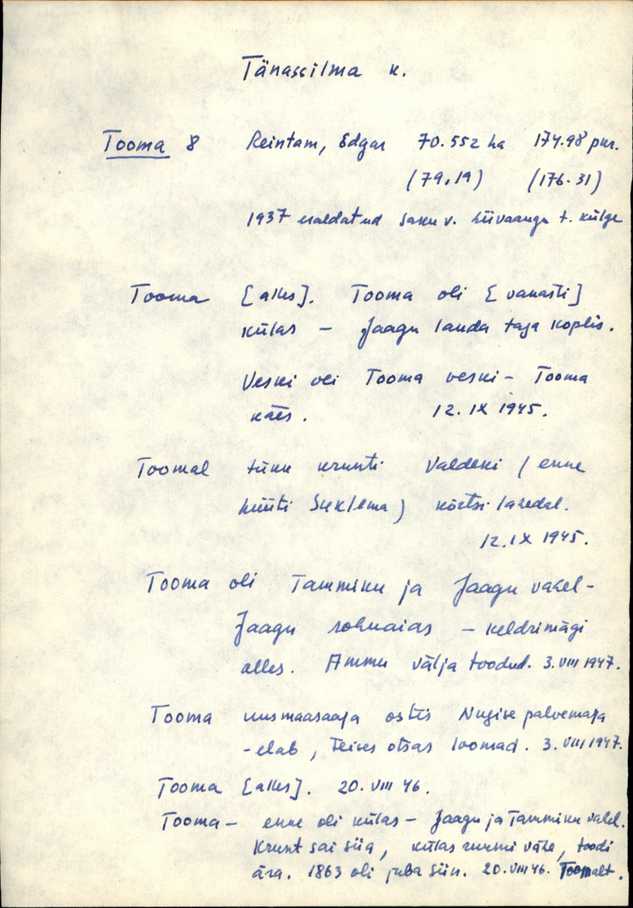 Tänassilma k.
Tooma 8 Reintam, Edgar 70.552 ha 174.98 puu.
(79,19) (176.31)
1937 eraldatud Saku v. Liivaaugu t. külge
Tooma [alles]. Tooma oli [vanasti]
külas – Jaagu lauda taga koplis.
Veski oli Tooma veski – Tooma
käes. 12. IX 1945.
Toomal tükk krunti Valdeki (enne
hüüti Suklema) kõrtsi lähedal.
12. IX 1945.
Tooma oli Tammiku ja Jaagu vahel –
Jaagu rohuaias – keldrimägi
alles. Ammu välja toodud. 3. VIII 1947.
Tooma uusmaasaaja ostis Nugise palvemaja
– elab, teises otsas loomad. 3. VIII 1947.
Tooma [alles]. 20. VIII 46.
Tooma – enne oli külas – Jaagu ja Tammiku vahel.
Krunt sai siia, külas ruumi vähe, toodi
ära. 1863 oli juba siin. 20. VIII 46. Toomalt.